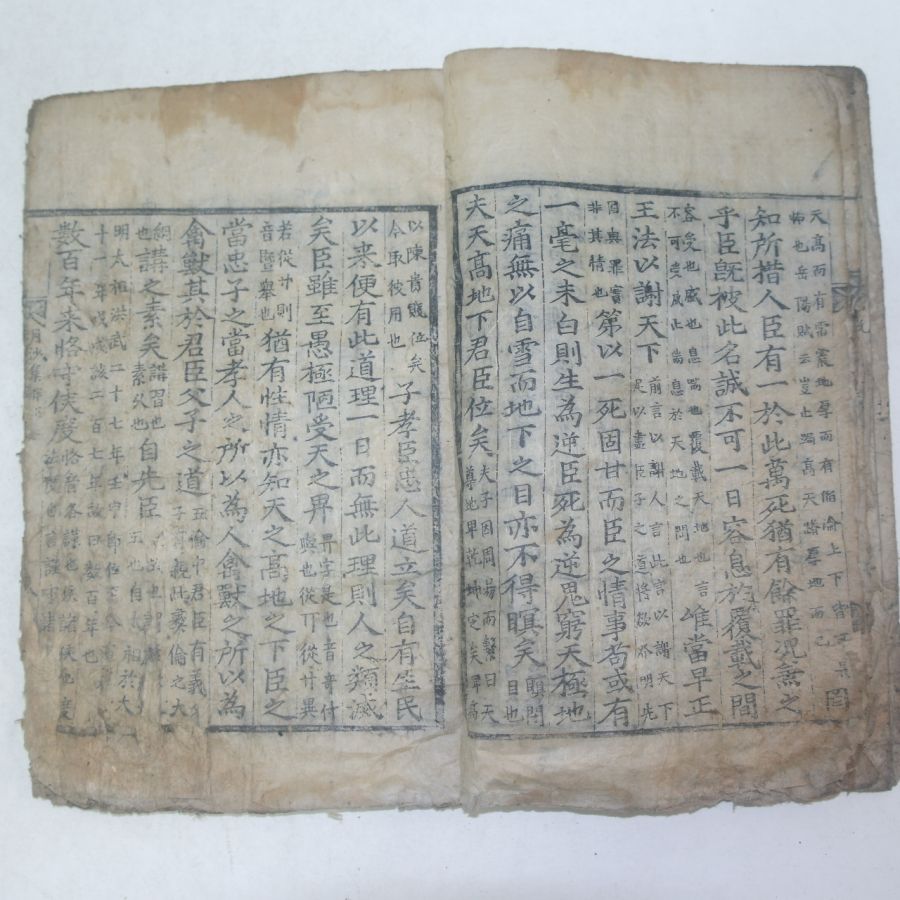 天高而有雷震地厚而有淪上下
怖也岳陽賦云豈止跼高天蹐厚地而已
知所措人臣有一於此萬死猶有餘罪況兼之
乎臣旣被此名誠不可一日容息於覆載之間
容受也威也息喘也覆載天地也言
不可受戚止喘息於天地之間也
唯當早正
王法以謝天下
前言以謝人言此言以謝天下
足以盡臣子之道
第以一死固甘而臣之情事苟或有
自與罪實
非其情也
一毫之未白則生為逆臣死為逆鬼窮天極地
之痛無以自雪而地下之目亦不得瞑矣
瞑閉
目也
夫天高地下君臣位矣
夫子因周易而繫曰天
尊地卑乾坤定矣卑高
以陳貴賤位矣
今取彼用也
子孝臣忠人道立矣自有生民
以来便有此道理一日而無此理則人之類滅
矣臣雖至愚極陋受天之畀
畀字是也音
與也從丌從廾異
若從廾則
音暨舉也
猶有性情亦知天之高地之下臣之
當忠子之當孝人之所以為人禽獸之所以為
禽獸其於君臣父子之道
五倫中君臣有義父
子有親此彛倫之大
綱
也
講之素矣
講習也
素久也
自先臣
明太祖洪武二十七年壬申卽位
十一年戊戌該二百七年故曰數百年也
數百年来恪守侯度
恪者各謹也侯諸侯也度
法度也言謹守諸